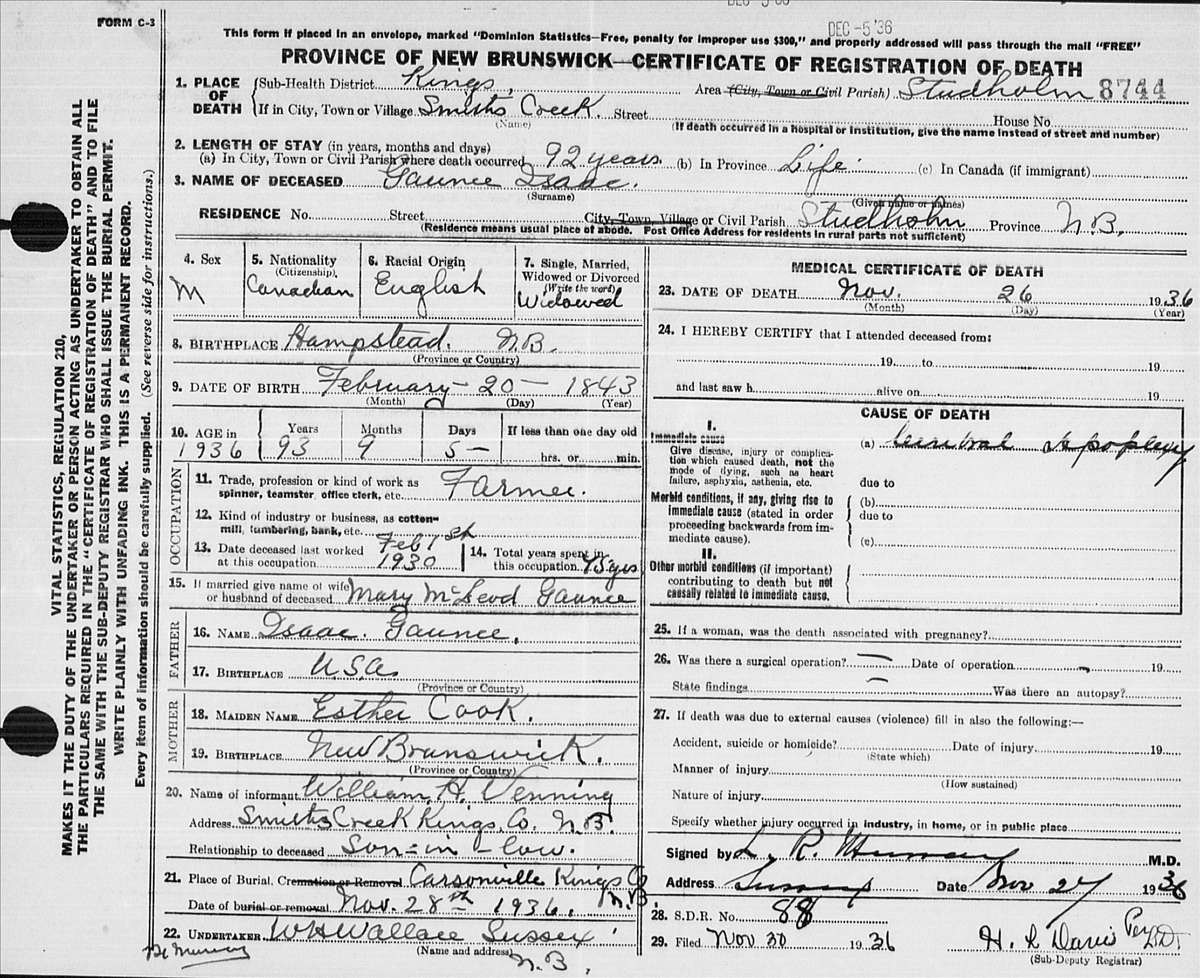 FORM C-3
DEC -5 '36
This form if placed in an envelope, marked "Dominion Statistics—Free, penalty for improper use $300," and properly addressed will pass through the mail "FREE"
PROVINCE OF NEW BRUNSWICK—CERTIFICATE OF REGISTRATION OF DEATH
8744
1. PLACE OF DEATH
Sub-Health District Kings, Area (City, Town or Civil Parish) Studholm
If in City, Town or Village Smiths Creek Street House No.
(Name) (If death occurred in a hospital or institution, give the name instead of street and number)
2. LENGTH OF STAY (in years, months and days)
(a) In City, Town or Civil Parish where death occurred 92 years (b) In Province Life (c) In Canada (if immigrant)
3. NAME OF DECEASED Gaunce Isaac.
(Surname) (Given name or names)
RESIDENCE No. Street City, Town, Village or Civil Parish Studholm Province N.B.
(Residence means usual place of abode. Post Office Address for residents in rural parts not sufficient)
4. Sex
M
5. Nationality
(Citizenship)
Canadian
6. Racial Origin
English
7. Single, Married, Widowed or Divorced
(Write the word)
Widowed
8. BIRTHPLACE Hampstead. N.B.
(Province or Country)
9. DATE OF BIRTH February - 20 - 1843
(Month) (Day) (Year)
10. AGE in 1936
Years Months Days If less than one day old
93 9 5 hrs. or min.
OCCUPATION
11. Trade, profession or kind of work as spinner, teamster, office clerk, etc. Farmer.
12. Kind of industry or business, as cotton-mill, lumbering, bank, etc.
13. Date deceased last worked at this occupation Feb 1st 1930
14. Total years spent in this occupation 75 yrs
15. If married give name of wife or husband of deceased Mary McLeod Gaunce
FATHER
16. NAME Isaac. Gaunce.
17. BIRTHPLACE U.S.A.
(Province or Country)
MOTHER
18. MAIDEN NAME Esther Cook.
19. BIRTHPLACE New Brunswick.
(Province or Country)
20. Name of informant William H. Venning
Address Smiths Creek Kings Co. N.B.
Relationship to deceased Son-in-law.
21. Place of Burial, Cremation or Removal Carsonville Kings Co N.B.
Date of burial or removal Nov. 28th 1936.
22. UNDERTAKER W H Wallace Sussex N.B.
(Name and address)
MEDICAL CERTIFICATE OF DEATH
23. DATE OF DEATH Nov. 26 1936
(Month) (Day) (Year)
24. I HEREBY CERTIFY that I attended deceased from:
19 to 19
and last saw h alive on 19
CAUSE OF DEATH
I.
Immediate cause
Give disease, injury or complication which caused death, not the mode of dying, such as heart failure, asphyxia, asthenia, etc.
(a) Cerebral Apoplexy
due to
Morbid conditions, if any, giving rise to immediate cause (stated in order proceeding backwards from immediate cause).
(b)
due to
(c)
II.
Other morbid conditions (if important) contributing to death but not causally related to immediate cause.
25. If a woman, was the death associated with pregnancy?
26. Was there a surgical operation? — Date of operation - 19
State findings — Was there an autopsy?
27. If death was due to external causes (violence) fill in also the following:—
Accident, suicide or homicide? Date of injury 19
(State which)
Manner of injury
(How sustained)
Nature of injury
Specify whether injury occurred in industry, in home, or in public place
Signed by L. R. Murray M.D.
Address Sussex Date Nov 27 1936
28. S.D.R. No. 88
29. Filed Nov 30 1936 H. L Davis
(Sub-Deputy Registrar)
VITAL STATISTICS, REGULATION 210,
MAKES IT THE DUTY OF THE UNDERTAKER OR PERSON ACTING AS UNDERTAKER TO OBTAIN ALL
THE PARTICULARS REQUIRED IN THE "CERTIFICATE OF REGISTRATION OF DEATH" AND TO FILE
THE SAME WITH THE SUB-DEPUTY REGISTRAR WHO SHALL ISSUE THE BURIAL PERMIT.
WRITE PLAINLY WITH UNFADING INK. THIS IS A PERMANENT RECORD.
Every item of information should be carefully supplied. (See reverse side for instructions.)